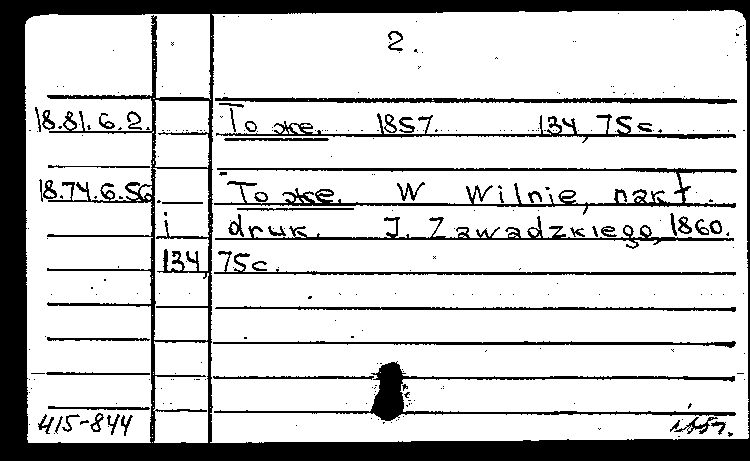 2.
18.81.6.2. То же. 1857. 134, 75с.
18.74.6.56. То же. W Wilnie, nakł.
i druk. J. Zawadzkiego, 1860.
134, 75с.
415-844